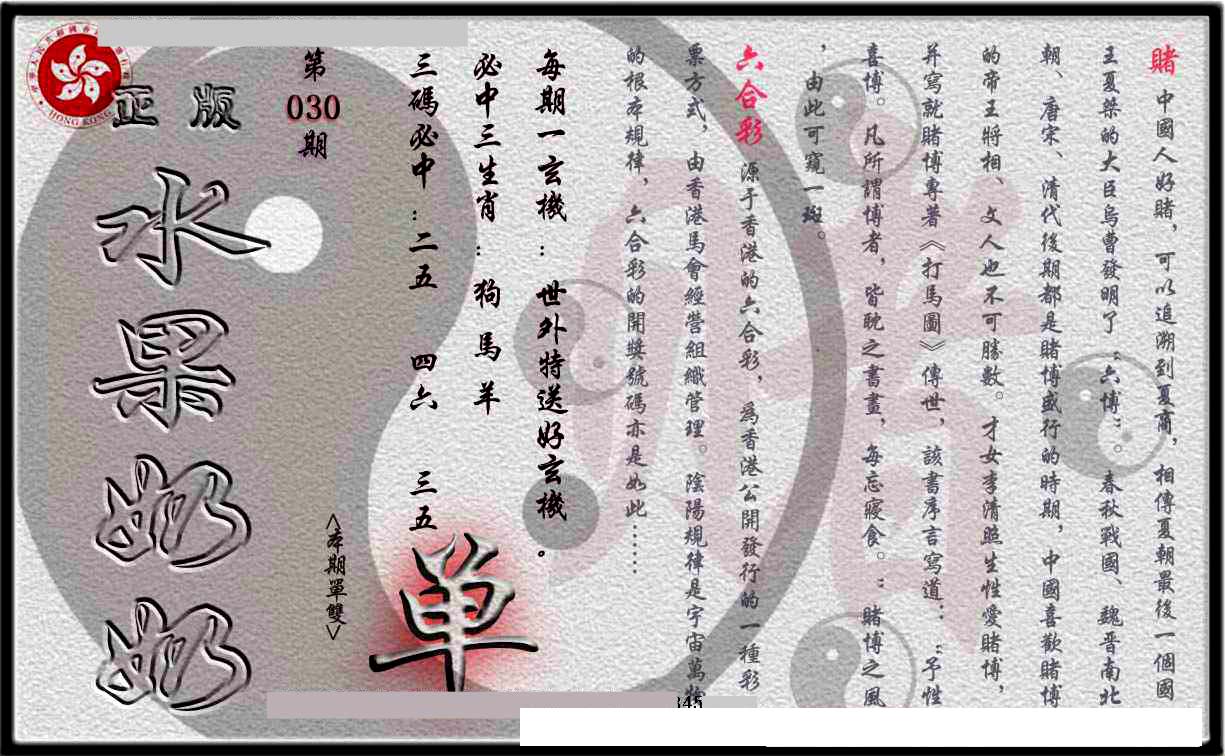 賭 中國人好賭，可以追溯到夏商，相傳夏朝最後一個國
王夏桀的大臣烏曹發明了“六博”。春秋戰國、魏晉南北
朝、唐宋、清代後期都是賭博盛行的時期，中國喜歡賭博
的帝王將相、文人也不可勝數。才女李清照生性愛賭博，
并寫就賭博專著《打馬圖》傳世，該書序言寫道：“予性
喜博。凡所謂博者，皆耽之書畫，每忘寢食。”賭博之風
，由此可窺一斑。
六合彩 源于香港的六合彩，為香港公開發行的一種彩
票方式，由香港馬會經營組織管理。陰陽規律是宇宙萬物
的根本規律，六合彩的開獎號碼亦是如此……
每期一玄機：世外特送好玄機。
必中三生肖：狗 馬 羊
三碼必中：二五 四六 三五
單
<本期單雙>
第
030
期
正版
水果奶奶
HONG KONG
345